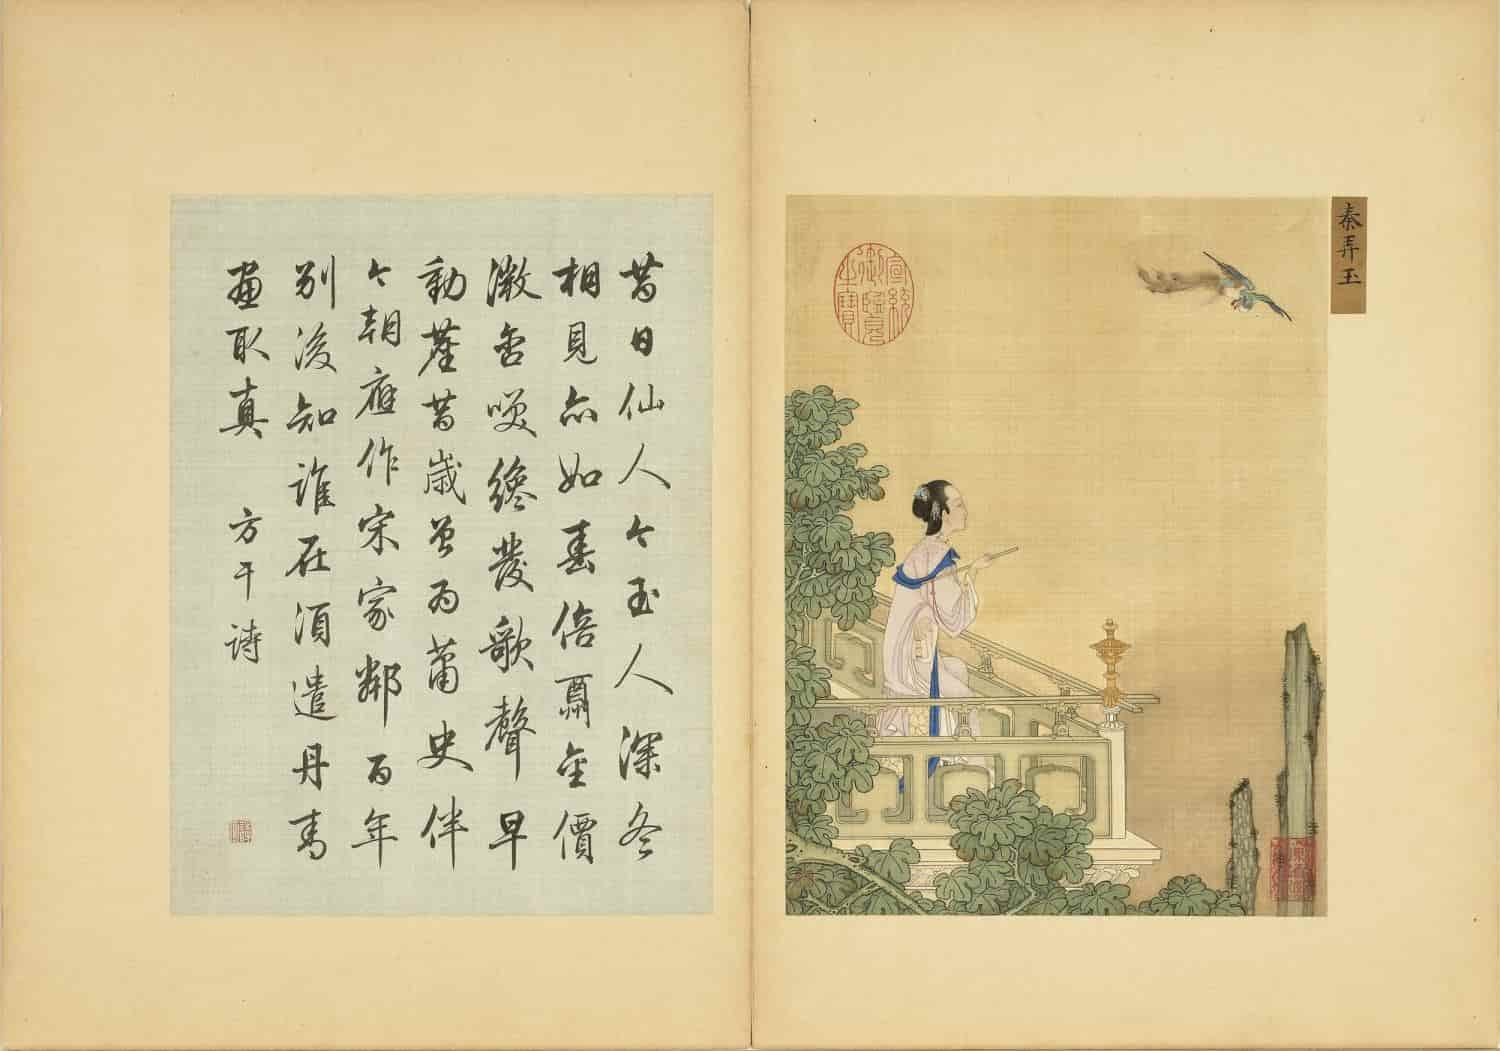 秦弄玉
宣統御覽之寶
昔日仙人今玉人深冬
相見亦如春倍金價
微含笑纔發歌聲早
動塵昔歲曾為蕭史伴
今朝應作宋家鄰百年
別後知誰在須遣丹青
畫取真 方干詩